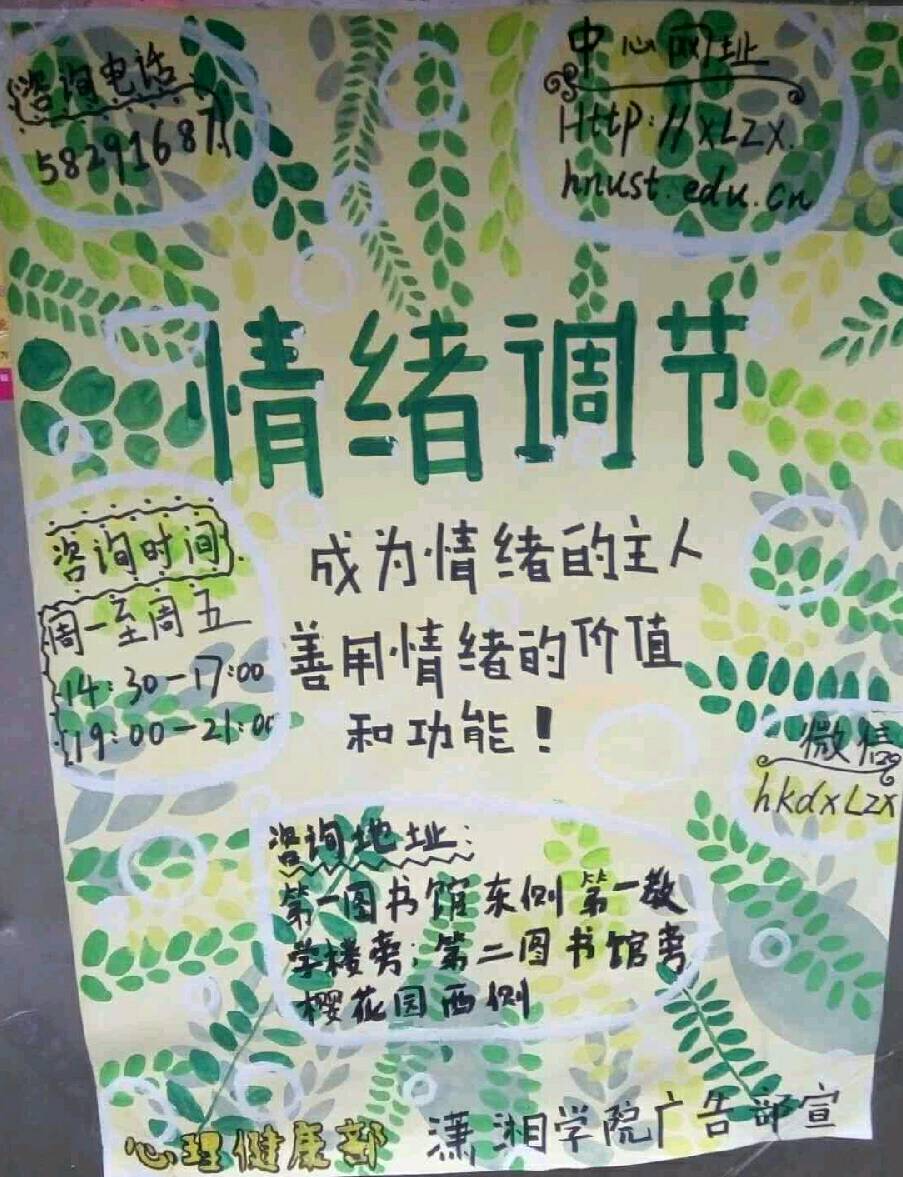 咨询电话
58291687
中心网址
Http://xLzx.
hnust.edu.cn
情绪调节
成为情绪的主人
善用情绪的价值
和功能！
咨询时间
周一至周五
14:30-17:00
19:00-21:00
微信
hkdxLzx
咨询地址:
第一图书馆东侧第一教
学楼旁;第二图书馆旁
樱花园西侧
心理健康部
潇湘学院广告部宣